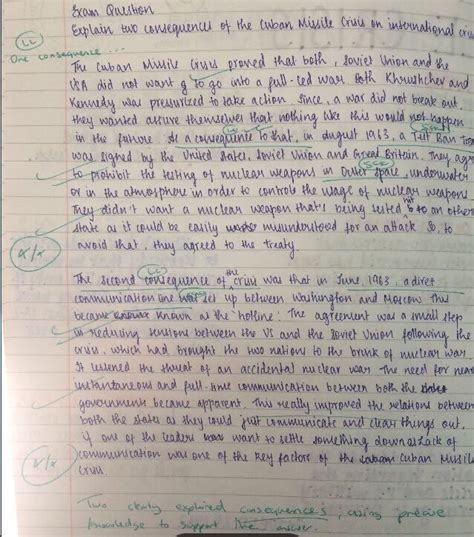 Exam Question
Explain two consequences of the Cuban Missile Crisis on international
One consequence...
The Cuban Missile Crisis proved that both, Soviet Union and the
USA did not want to go into a full-led war. Both Khrushchev and
Kennedy was pressurized to take action. Since, a war did not break out,
they wanted assure themselves that nothing like this would not happen
in the future. As a consequence to that, in August 1963, a Test Ban
was signed by the United States, Soviet Union and Great Britain. They
to prohibit the testing of nuclear weapons in Outer space, underwater
or in the atmosphere in order to controls the usage of nuclear weapons.
They didn't want a nuclear weapon that's being tested hit to an other
state as it could be easily misunderstood for an attack. So, to
avoid that, they agreed to the treaty.
The second consequence of the crisis was that in June, 1963, a direct
communication line was set up between Washington and Moscow. This
became known as the 'hotline'. The agreement was a small step
in reducing tensions between the US and the Soviet Union following the
crisis, which had brought the two nations to the brink of nuclear war.
It lessened the threat of an accidental nuclear war. The need for near
instantaneous and full-time communication between both the states
governments became apparent. This really improved the relations between
both the states as they could just communicate and clear things out,
if one of the leaders want to settle something down as lack of
communication was one of the key factors of the Cuban Missile
Crisis
Two clearly explained consequences; using precise
knowledge to support the answer.